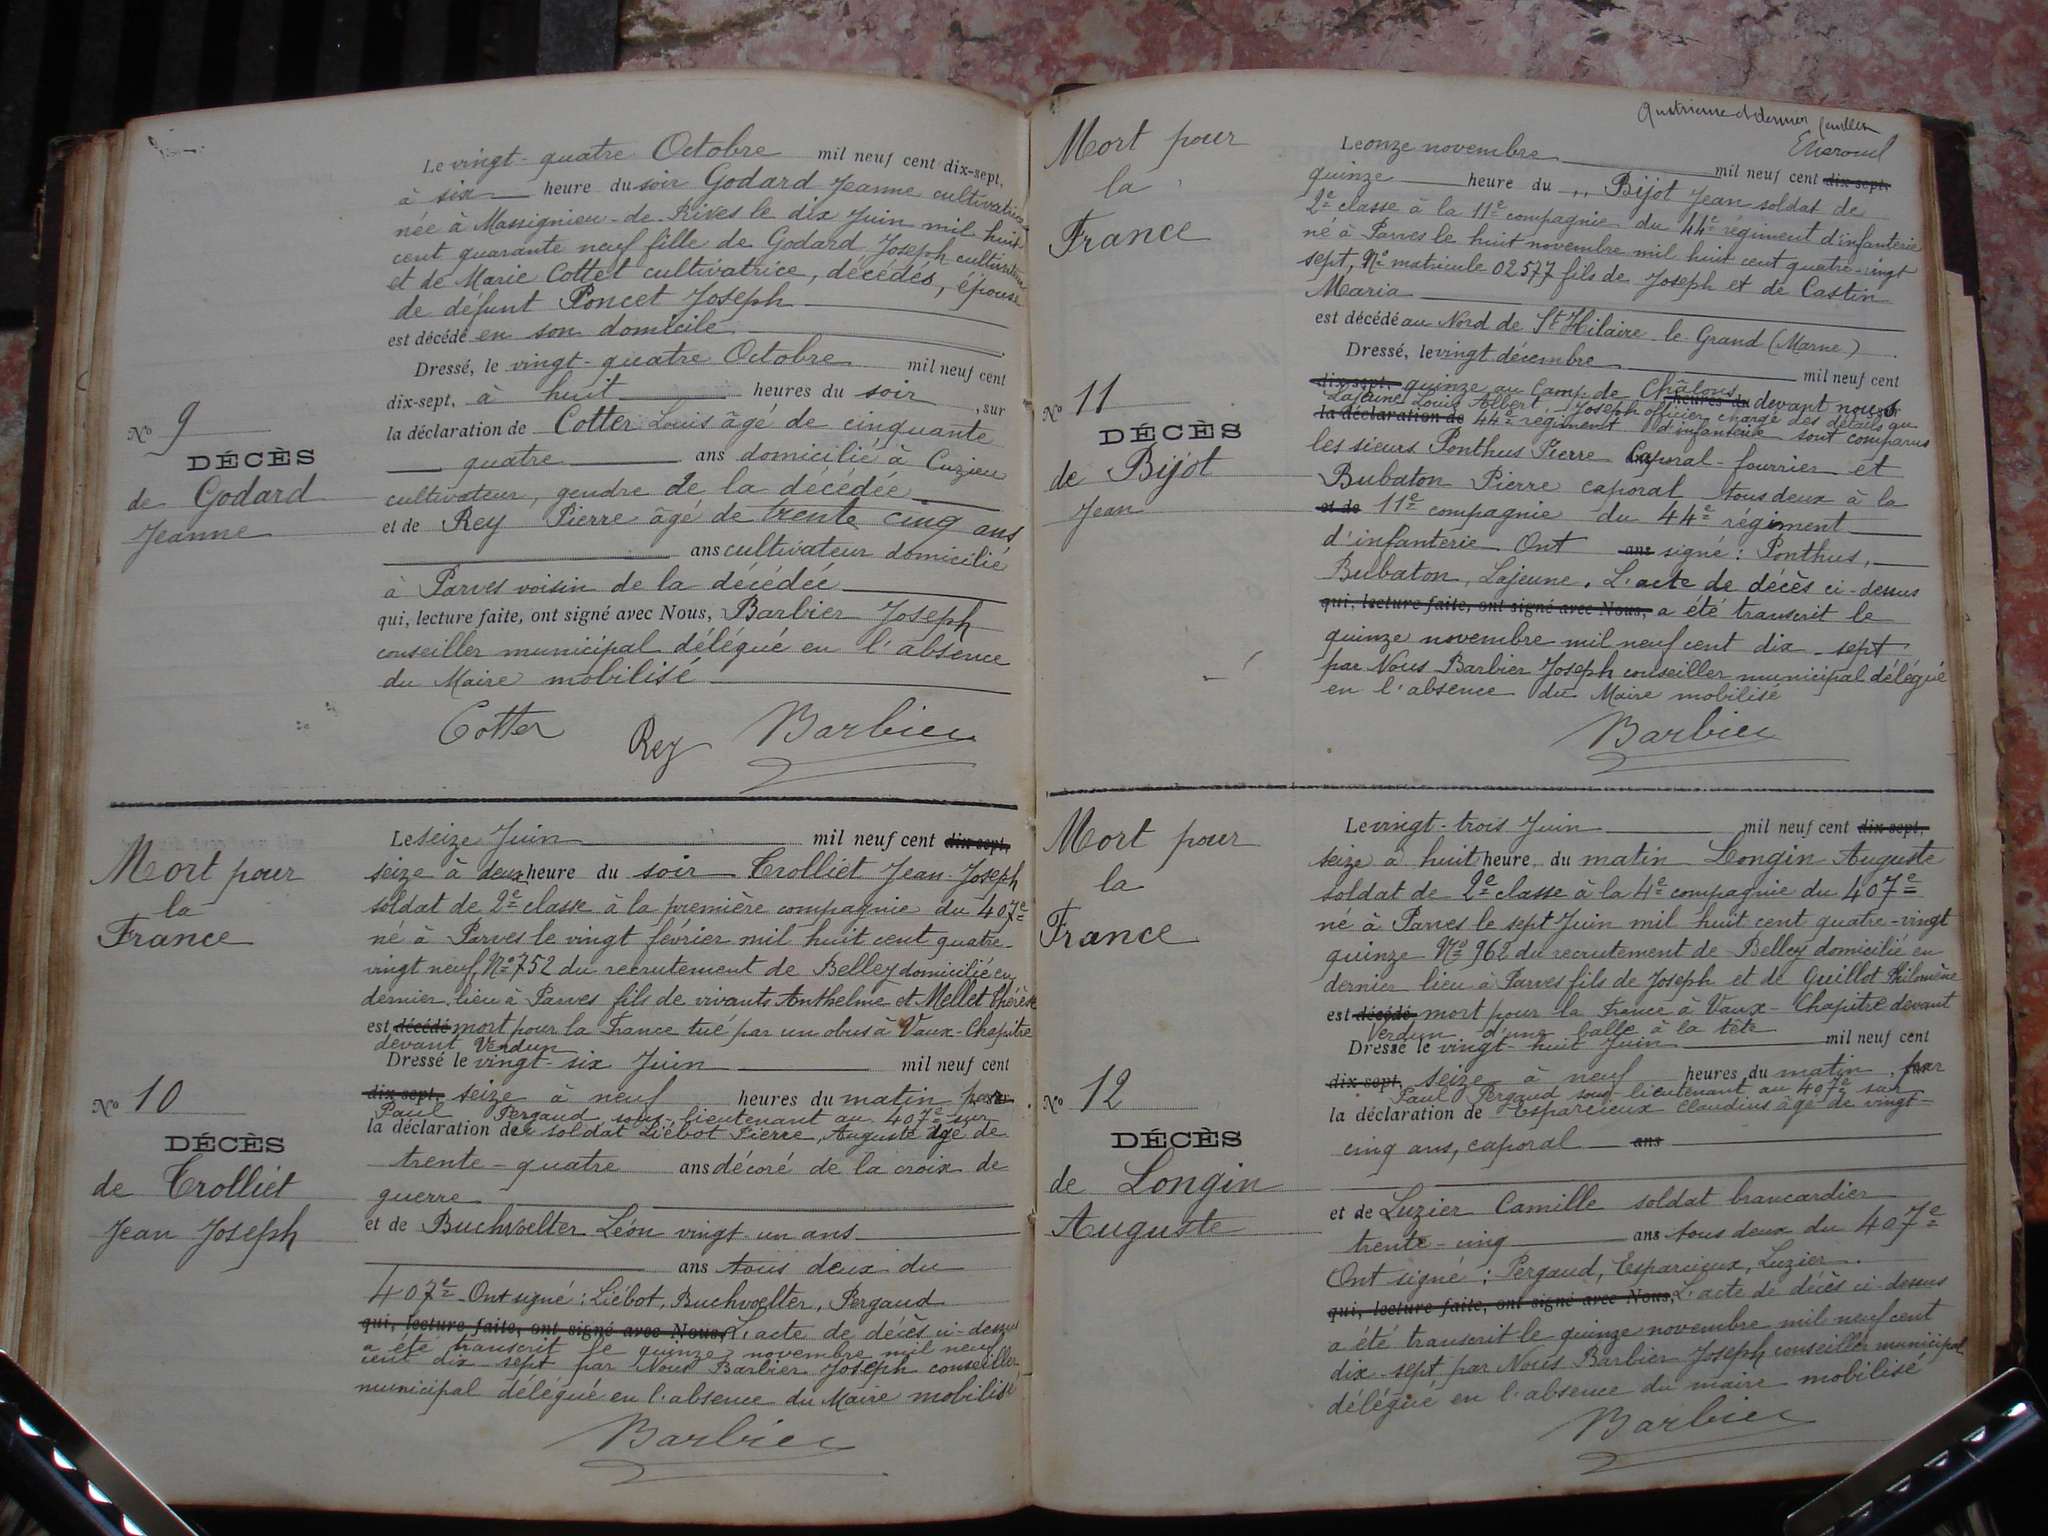 Le vingt-quatre Octobre mil neuf cent dix-sept,
à six heure du soir Godard Jeanne cultivatrice
née à Massignieu-de-Rives le dix Juin mil huit
cent quarante neuf fille de Godard Joseph cultivateur
et de Marie Cottet cultivatrice, décédés, épouse
de défunt Poncet Joseph
est décédé en son domicile
Dressé, le vingt-quatre Octobre mil neuf cent
dix-sept, à huit heures du soir, sur
la déclaration de Cotter Louis âgé de cinquante
quatre ans domicilié à Cuzieu
cultivateur, gendre de la décédée
et de Rey Pierre âgé de trente cinq ans
ans cultivateur domicilié
à Parves voisin de la décédée
qui, lecture faite, ont signé avec Nous, Barbier Joseph
conseiller municipal délégué en l'absence
du Maire mobilisé
Cotter Rey Barbier
No 9
DÉCÈS
de Godard
Jeanne
Mort pour
la
France
No 10
DÉCÈS
de Trolliet
Jean Joseph
Le seize Juin mil neuf cent dix-sept,
seize à deux heure du soir Trolliet Jean-Joseph
soldat de 2e classe à la première compagnie du 407e
né à Parves le vingt février mil huit cent quatre-
vingt neuf, No 752 du recrutement de Belley domicilié en
dernier lieu à Parves fils de vivants Anthelme et Mellet Thérèse
est décédé mort pour la France tué par un obus à Vaux-Chapitre
devant Verdun
Dressé le vingt-six Juin mil neuf cent
dix-sept, seize à neuf heures du matin par
Paul Pergaud sous-lieutenant au 407e sur
la déclaration de soldat Liébot Pierre, Auguste âgé de
trente-quatre ans décoré de la croix de
guerre
et de Buchwelter Léon vingt-un ans
ans tous deux du
407e Ont signé : Liébot, Buchwelter, Pergaud
qui, lecture faite, ont signé avec Nous, L'acte de décès ci-dessus
a été transcrit le quinze novembre mil neuf
cent dix sept par Nous Barbier Joseph conseiller
municipal délégué en l'absence du Maire mobilisé
Barbier
Quatrième et dernier feuillet
Mort pour
la
France
No 11
DÉCÈS
de Bijot
Jean
Le onze novembre mil neuf cent dix-sept,
quinze heure du ,, Bijot Jean soldat de
2e classe à la 11e compagnie du 44e régiment d'infanterie
né à Parves le huit novembre mil huit cent quatre-vingt
sept, No matricule 02577 fils de Joseph et de Castin
Maria
est décédé au Nord de St Hilaire-le-Grand (Marne)
Dressé, le vingt décembre mil neuf cent
dix-sept, quinze au Camp de Châlons heures du devant nous sur
Lajeune Louis Albert Joseph officier chargé des détails au
la déclaration de 44e régiment d'infanterie sont comparus
les sieurs Ponthus Pierre Caporal-fourrier et
Bubaton Pierre caporal tous deux à la
et de 11e compagnie du 44e régiment
d'infanterie Ont ans signé : Ponthus,
Bubaton, Lajeune. L'acte de décès ci-dessus
qui, lecture faite, ont signé avec Nous, a été transcrit le
quinze novembre mil neuf cent dix-sept
par Nous Barbier Joseph conseiller municipal délégué
en l'absence du Maire mobilisé
Barbier
Mort pour
la
France
No 12
DÉCÈS
de Longin
Auguste
Le vingt-trois Juin mil neuf cent dix-sept,
seize à huit heure du matin Longin Auguste
soldat de 2e classe à la 4e compagnie du 407e
né à Parves le sept Juin mil huit cent quatre-vingt
quinze No 962 du recrutement de Belley domicilié en
dernier lieu à Parves fils de Joseph et de Guillot Philomène
est décédé mort pour la France à Vaux-Chapitre devant
Verdun d'une balle à la tête
Dressé le vingt-huit Juin mil neuf cent
dix-sept, seize à neuf heures du matin, par
Paul Pergaud sous lieutenant au 407e sur
la déclaration de Esparcieux Claudius âgé de vingt-
cinq ans, caporal ans
et de Luzier Camille soldat brancardier
trente-cinq ans tous deux du 407e
Ont signé : Pergaud, Esparcieux, Luzier.
qui, lecture faite, ont signé avec Nous, L'acte de décès ci-dessus
a été transcrit le quinze novembre mil neuf cent
dix-sept par Nous Barbier Joseph conseiller municipal
délégué en l'absence du maire mobilisé
Barbier